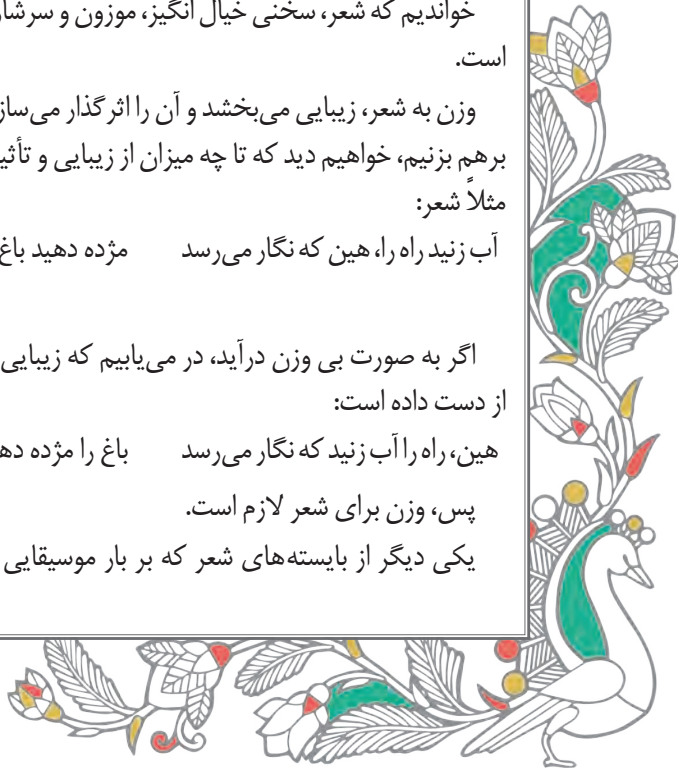 خواندیم که شعر، سخنی خیال انگیز، موزون و
است.
وزن به شعر، زیبایی می‌بخشد و آن را اثر گذار
برهم بزنیم، خواهیم دید که تا چه میزان از زیبایی و
مثلاً شعر:
آب زنید راه را، هین که نگار می‌رسد مژده دهید باغ
اگر به صورت بی وزن درآید، در می‌یابیم که زیبایی
از دست داده است:
هین، راه را آب زنید که نگار می‌رسد باغ را مژده
پس، وزن برای شعر لازم است.
یکی دیگر از بایسته‌های شعر که بر بار موسیقایی